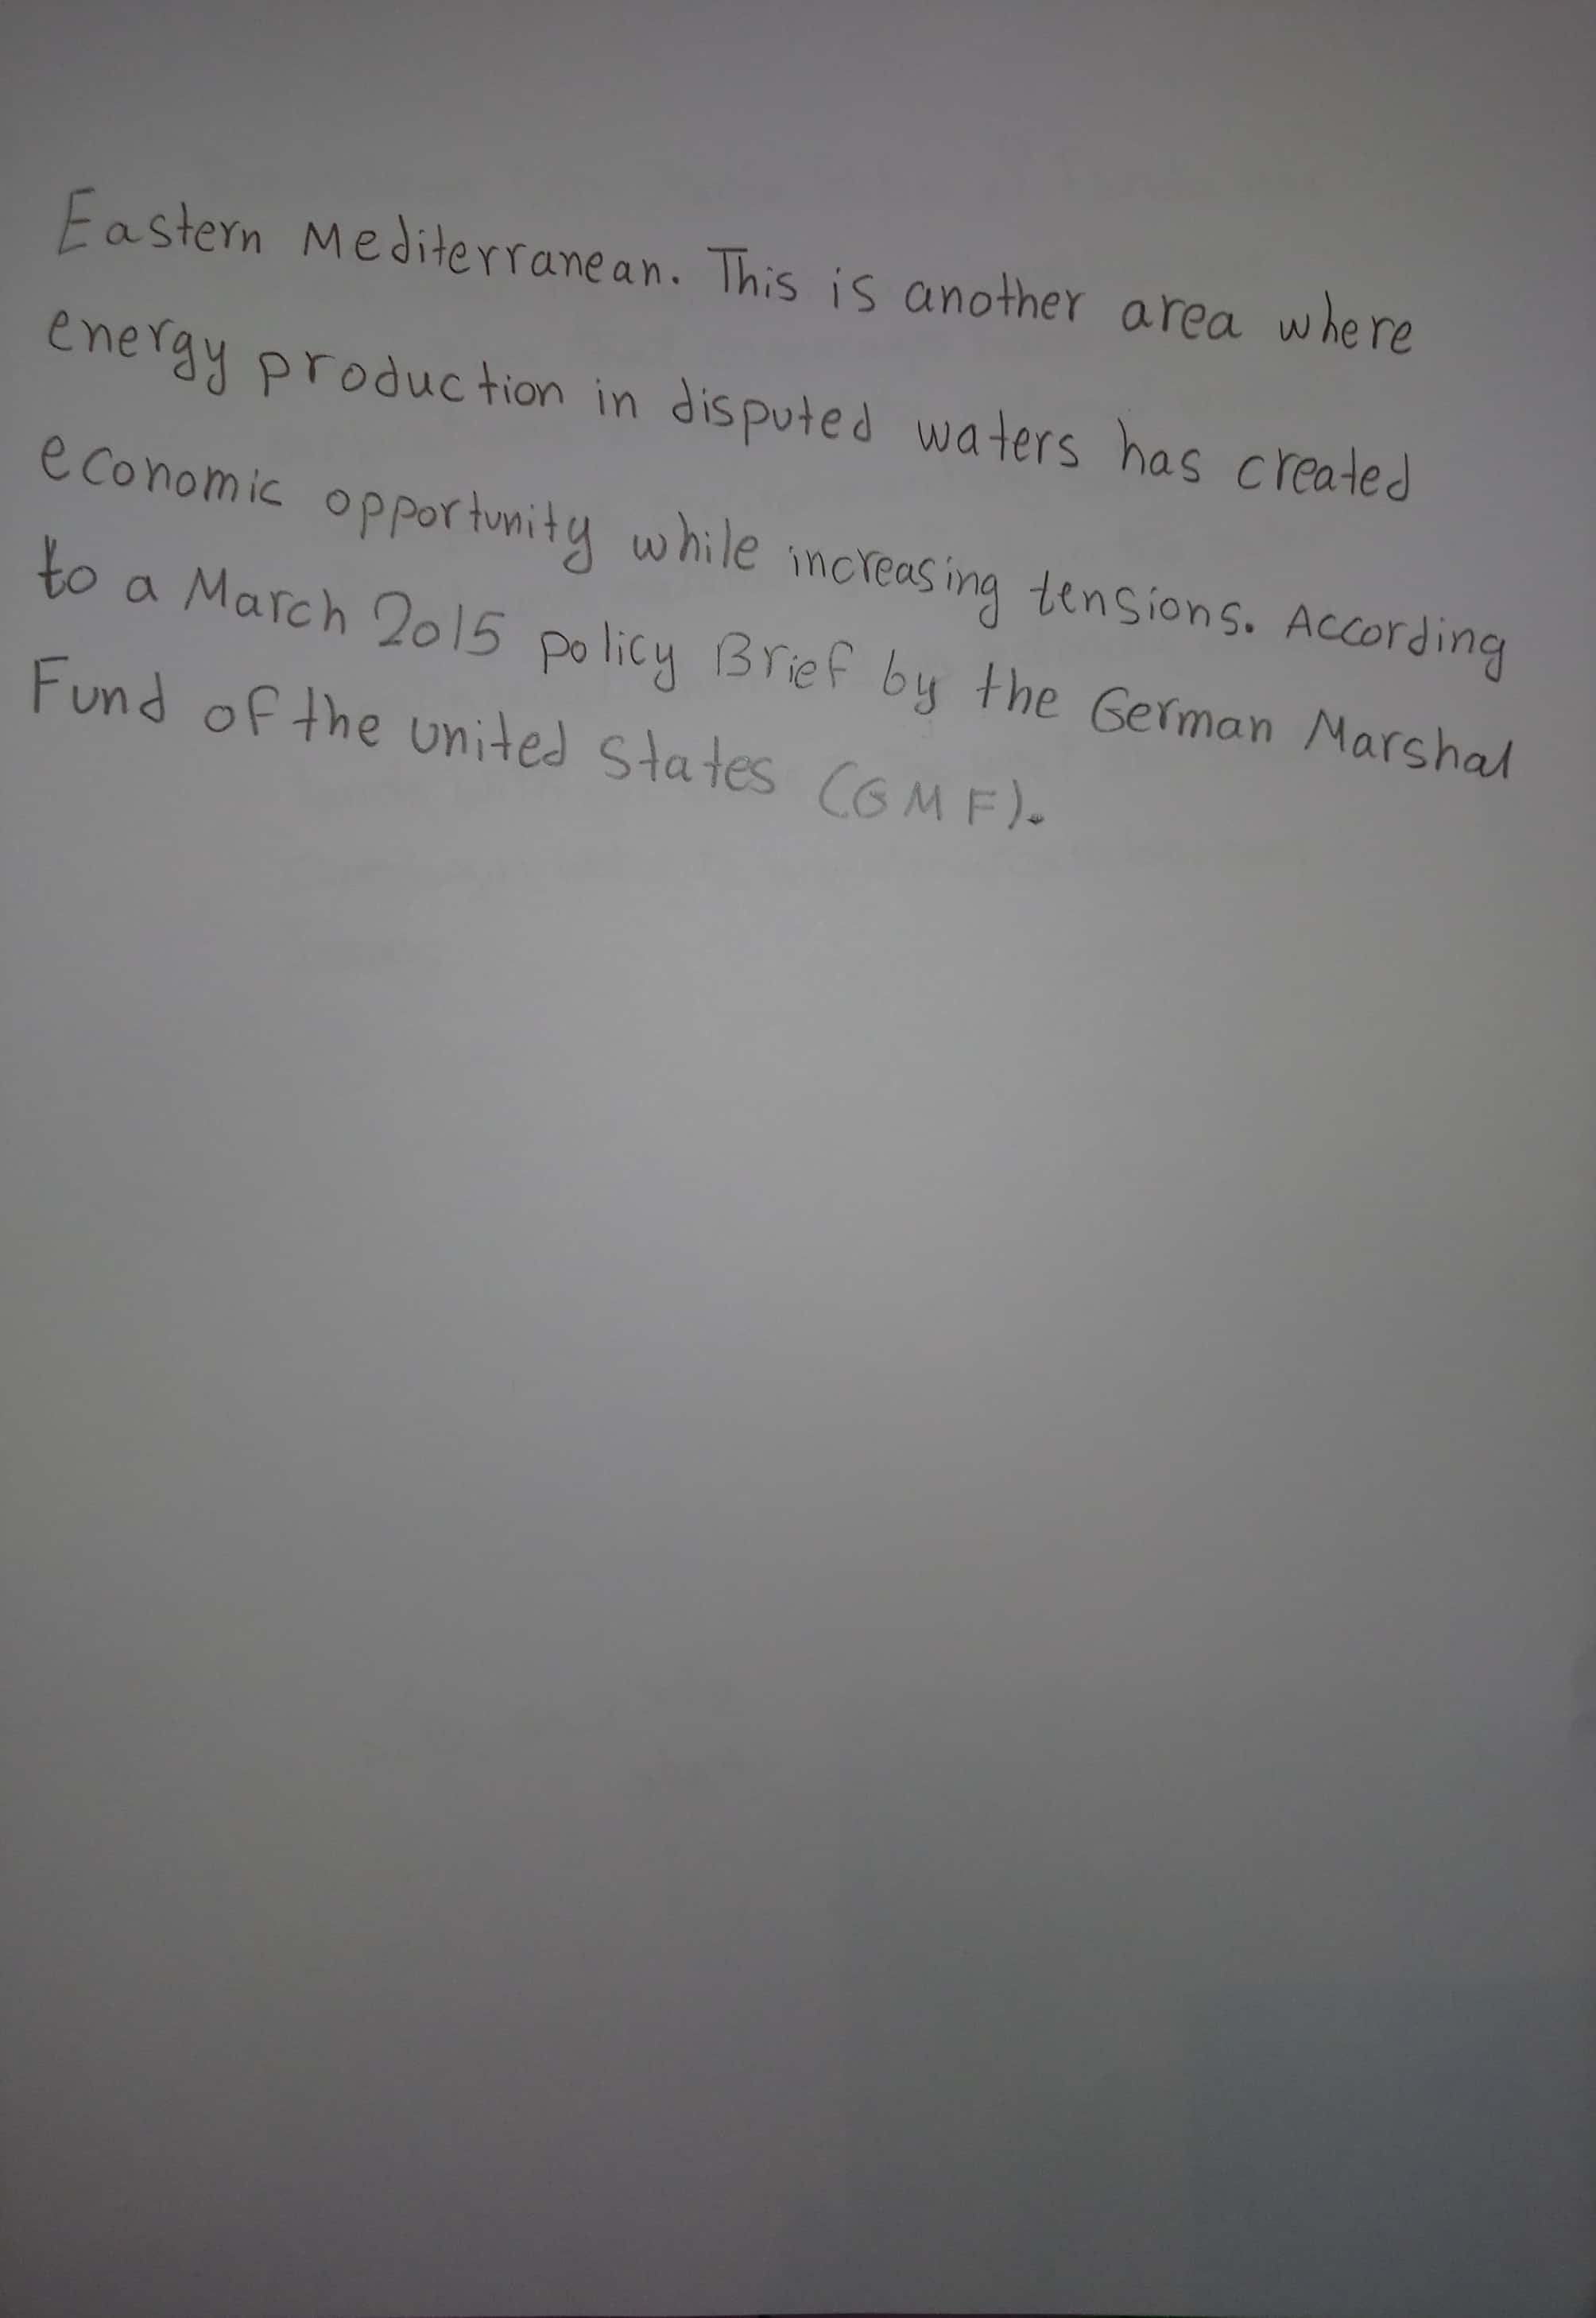 Eastern Mediterranean. This is another area where
energy production in disputed waters has created
economic opportunity while increasing tensions. According
to a March 2015 policy Brief by the German Marshal
Fund of the united states (GMF).